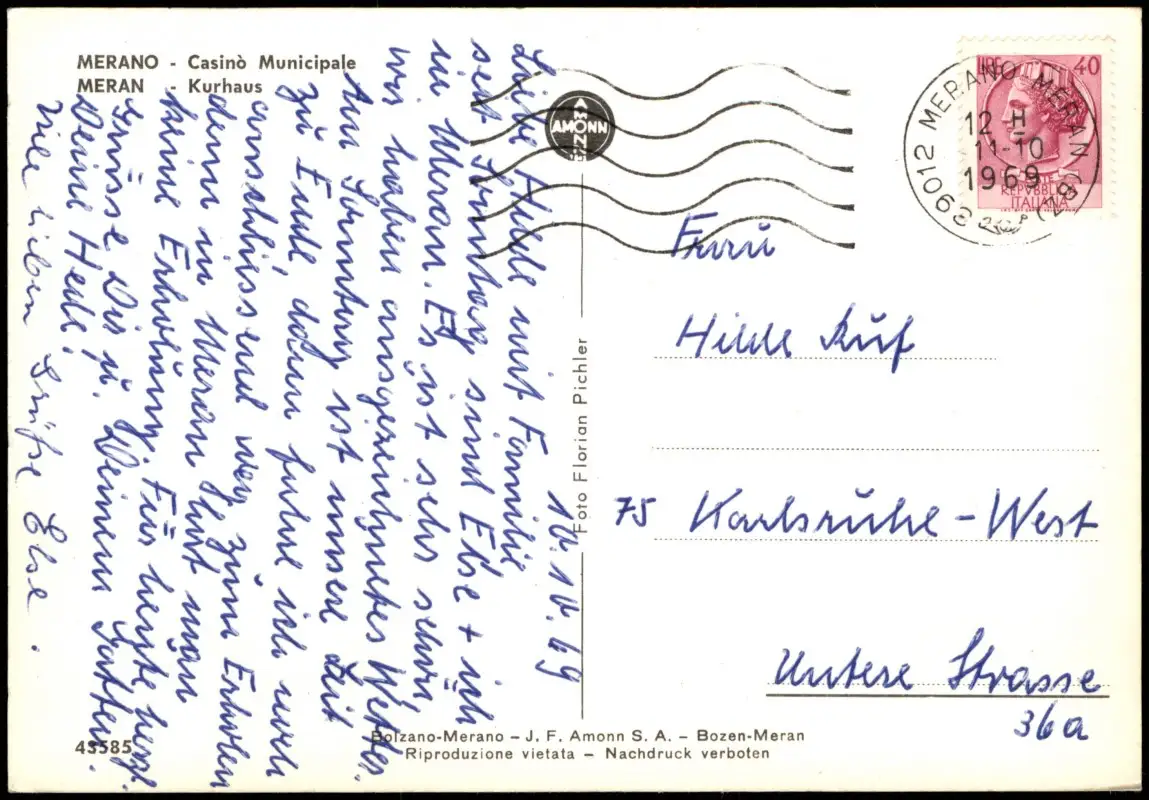 MERANO - Casinò Municipale
MERAN - Kurhaus
10.10.69
Liebe Hilde mit Familie
seit Sonntag sind Else + ich
in Meran. Es ist sehr schön,
wir haben ausgezeichnetes Wetter.
Am Sonntag ist unsere Zeit
zu Ende, dann fahre ich noch
anschliessend weg zum Erholen
denn in Meran hat man
keine Erholung. Für heute herzl.
Grüsse Dir u. Deinem Gatten.
Deine Hede.
Viele lieben Grüße Else.
AMONN
AMONN
Foto Florian Pichler
40
REPVBBLICA
ITALIANA
39012 MERANO MERAN (BZ)
12 H
11-10
1969
Frau
Hilde Kuf
75 Karlsruhe-West
Untere Strasse
36a
43585
Bolzano-Merano – J. F. Amonn S. A. – Bozen-Meran
Riproduzione vietata – Nachdruck verboten